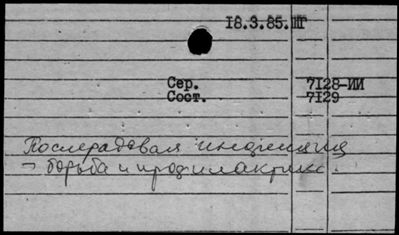 18.3.85.ШГ
Сер. 7128-ИИ
Сост. 7129
Послеродовая инфекция
- борьба и профилактика.